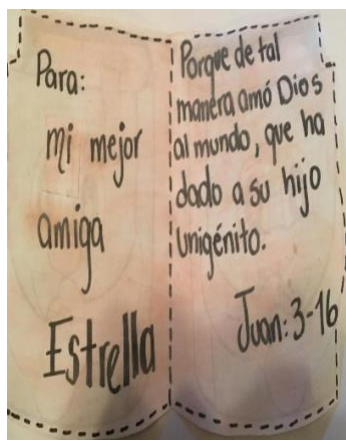 Para:
mi mejor
amiga
Estrella
Porque de tal
manera amó Dios
al mundo, que ha
dado a su hijo
Unigénito.
Juan: 3-16